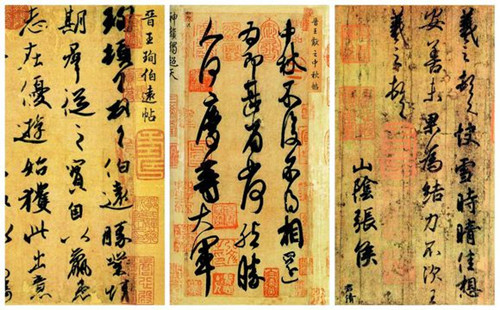 晉王珣伯遠帖
珣頓首頓首伯遠勝業情
期羣從之寶自以羸患
志在優遊始獲此出意
晉王獻之中秋帖
中秋不復不得相還
為即甚省如何然勝
人何慶等大軍
羲之頓首快雪時晴佳想
安善未果為結力不次王
羲之頓首
山陰張侯
君倩